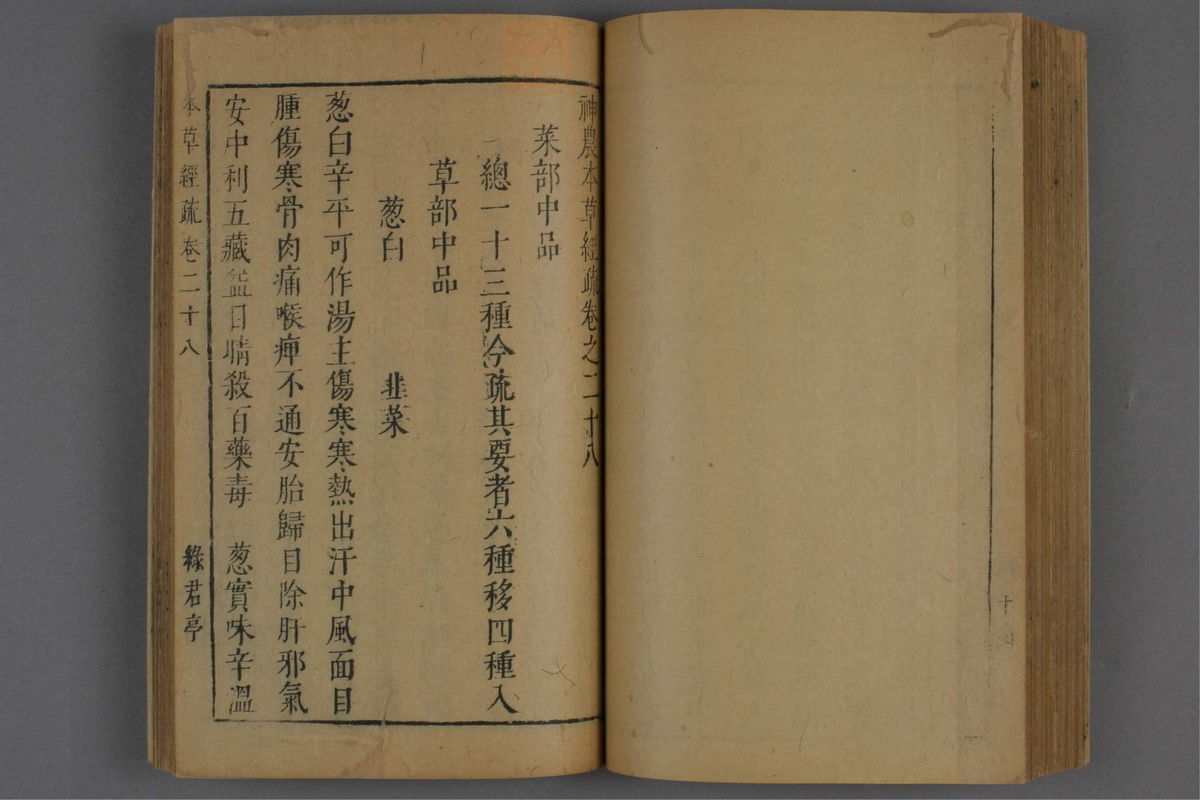 神農本草經疏卷之二十八
菜部中品
總一十三種今疏其要者六種移四種入
草部中品
葱白　韭菜
葱白辛平可作湯主傷寒寒熱出汗中風面目
腫傷寒骨肉痛喉痺不通安胎歸目除肝邪氣
安中利五藏益目睛殺百藥毒　葱實味辛溫
本草經疏　卷二十八　綠君亭